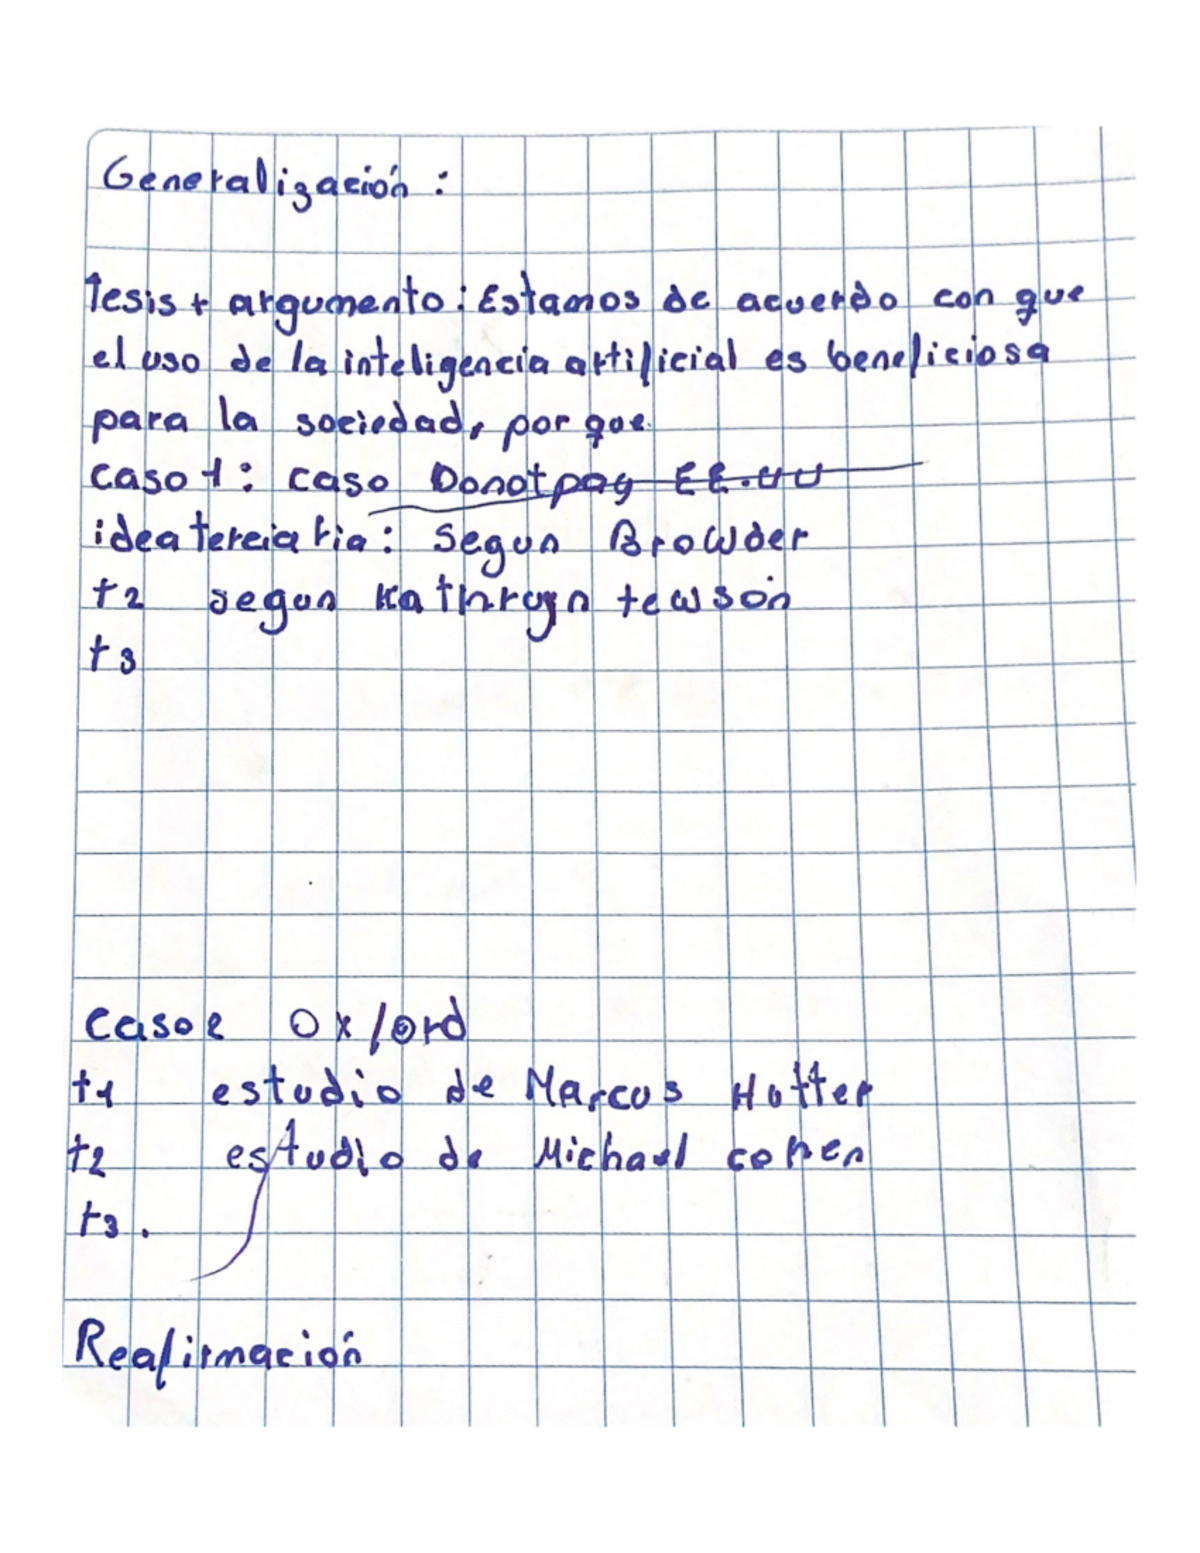 Generalización :
tesis + argumento : Estamos de acuerdo con que
el uso de la inteligencia artificial es beneficiosa
para la sociedad, por que.
caso 1 : caso Donotpay EE.UU
idea terciaria : Segun Browder
t2 segun Kathryn tewson
t3
Caso 2 Oxford
t1 estudio de Marcus Hutter
t2 estudio de Michael cohen
t3 .
Reafirmación